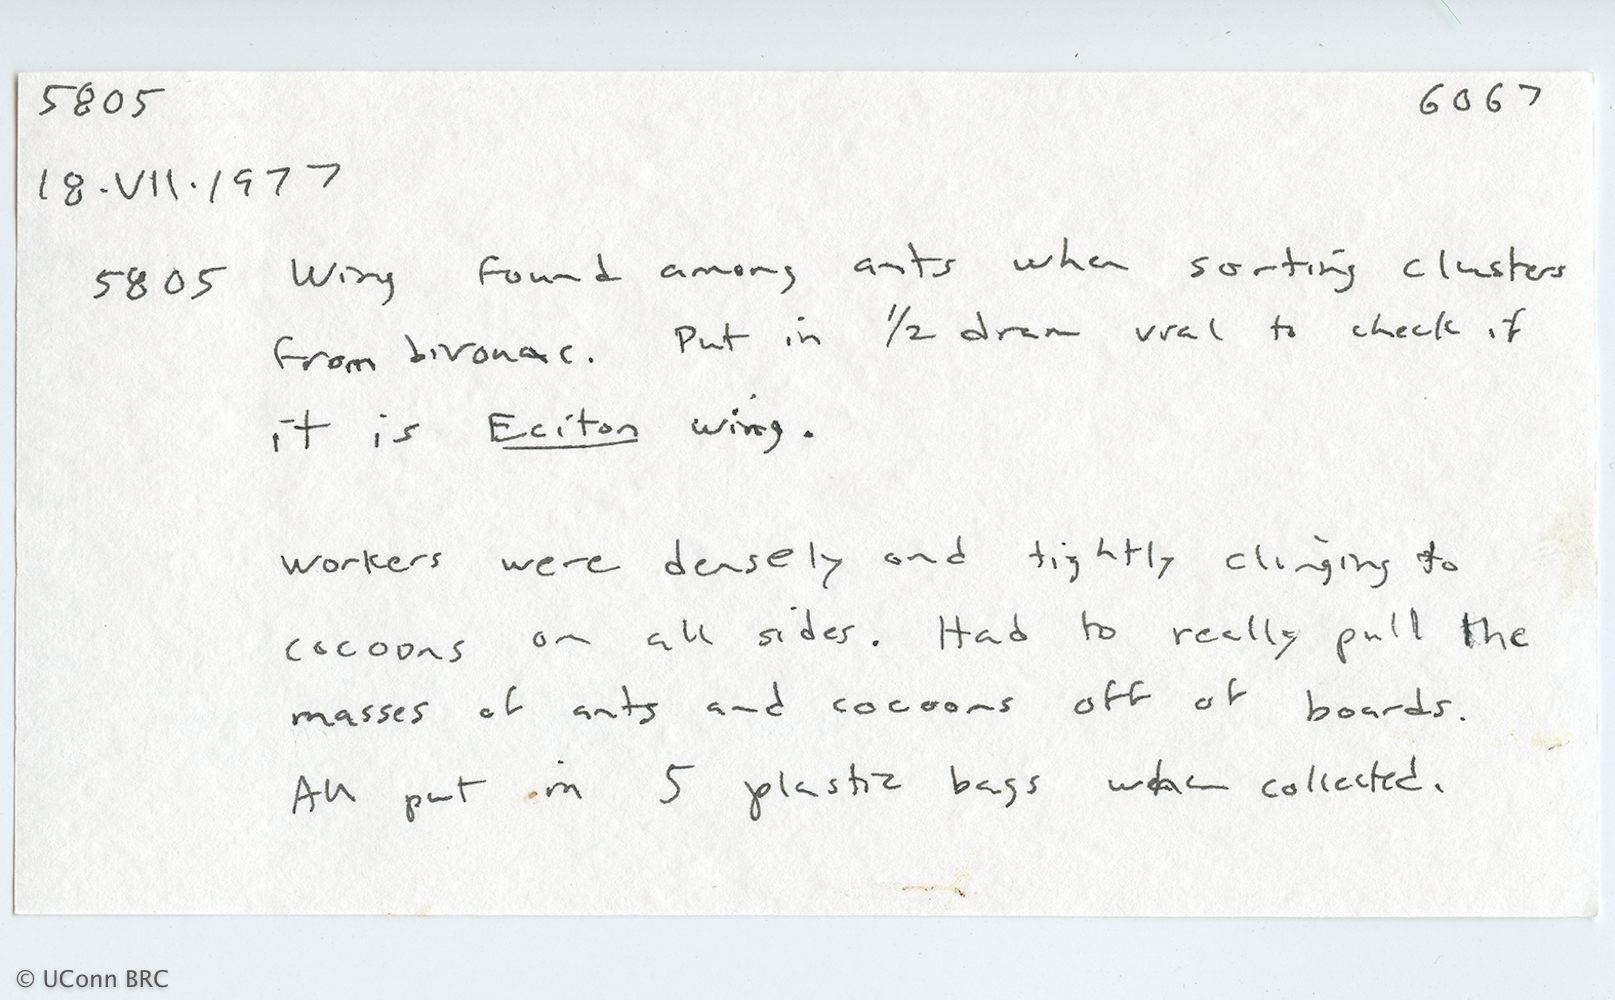 5805 6067
18.VII.1977
5805 Wing found among ants when sorting clusters
from bivouac. Put in 1/2 dram vial to check if
it is Eciton wing.
Workers were densely and tightly clinging to
cocoons on all sides. Had to really pull the
masses of ants and cocoons off of boards.
All put in 5 plastic bags when collected.
© UConn BRC